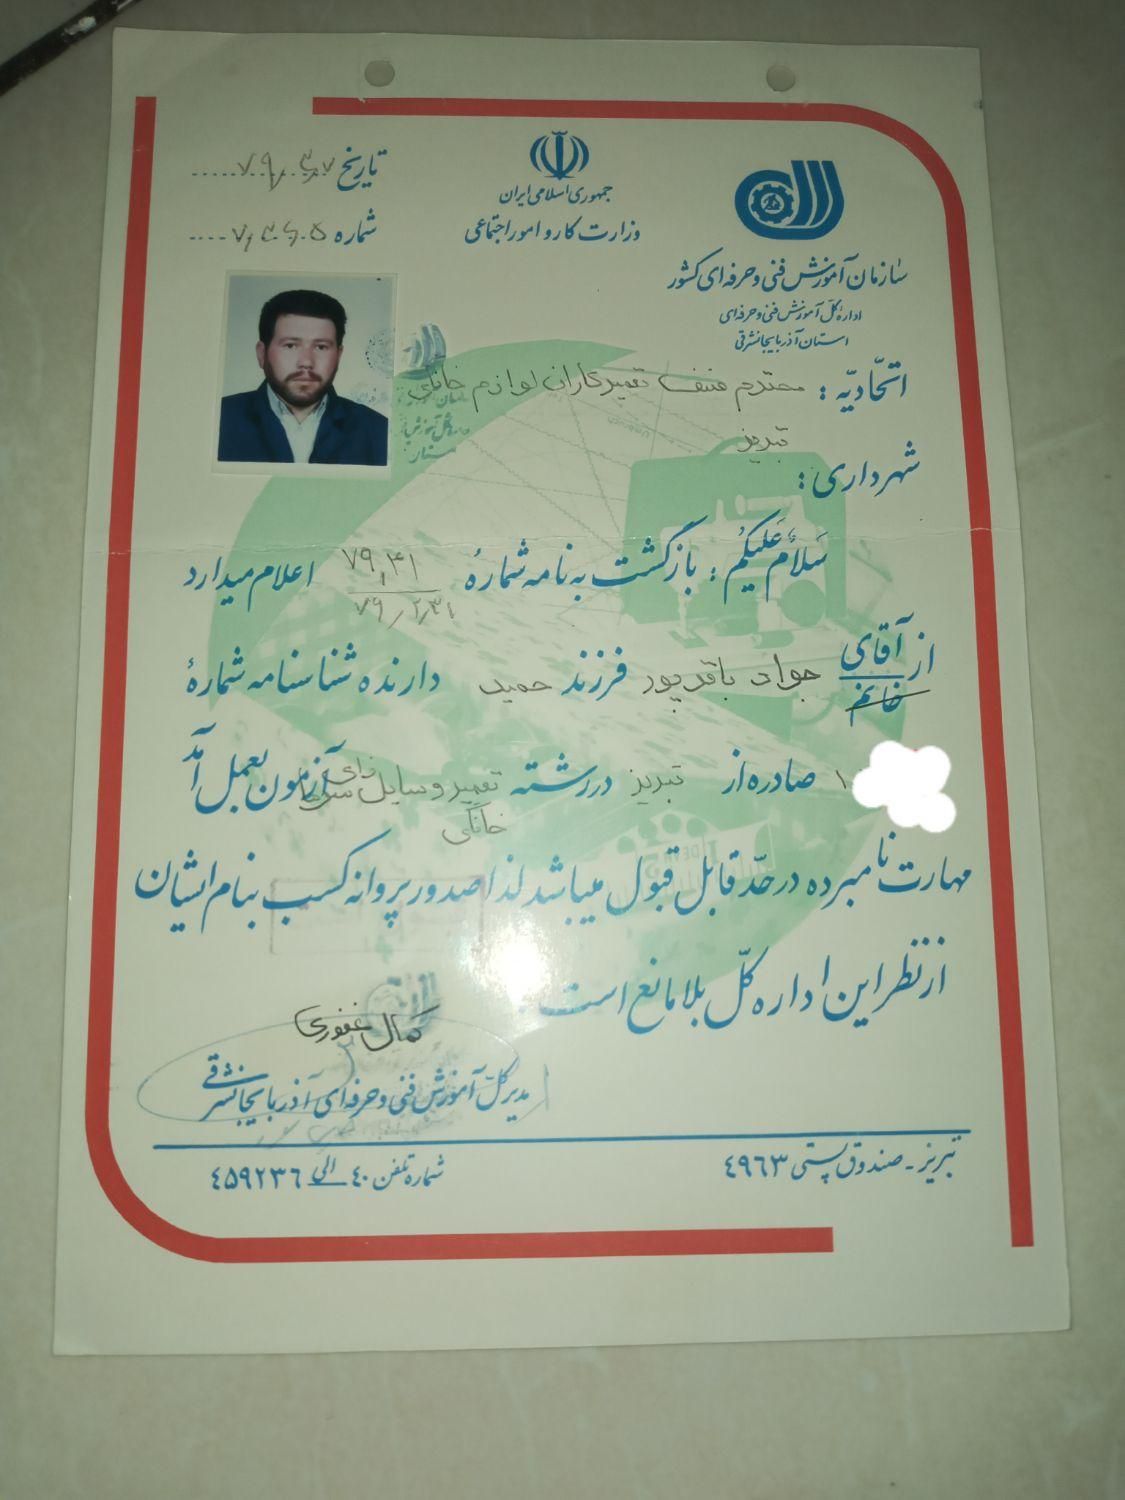 جمهوری اسلامی ایران
وزارت کار و امور اجتماعی
تاریخ
شماره
سازمان آموزش فنی و حرفه ای کشور
اداره کل آموزش فنی و حرفه ای
استان آذربایجانشرقی
اتحادیّه : محترم صنف تعمیرکاران لوازم خانگی
تبریز
شهرداری :
سَلامٌ عَلَیکُم : بازگشت به نامه شمارهٔ ۷۹٫۴۱ اعلام میدارد
۷۹٫۲٫۳۱
از آقای جواد باقرپور فرزند حمید دارنده شناسنامه شمارهٔ
خانم
۱ صادره از تبریز در رشته تعمیر وسایل آزمون بعمل آمد
خانگی
مهارت نامبرده در حدّ قابل قبول میباشد لذا صدور پروانه کسب بنام ایشان
از نظر این اداره کلّ بلامانع است .
کمال غفوری
مدیر کلّ آموزش فنی و حرفه ای آذربایجانشرقی
تبریز - صندوق پستی ٤٩٦٣
شماره تلفن ٤٠ الی ٤٥٩٢٣٦